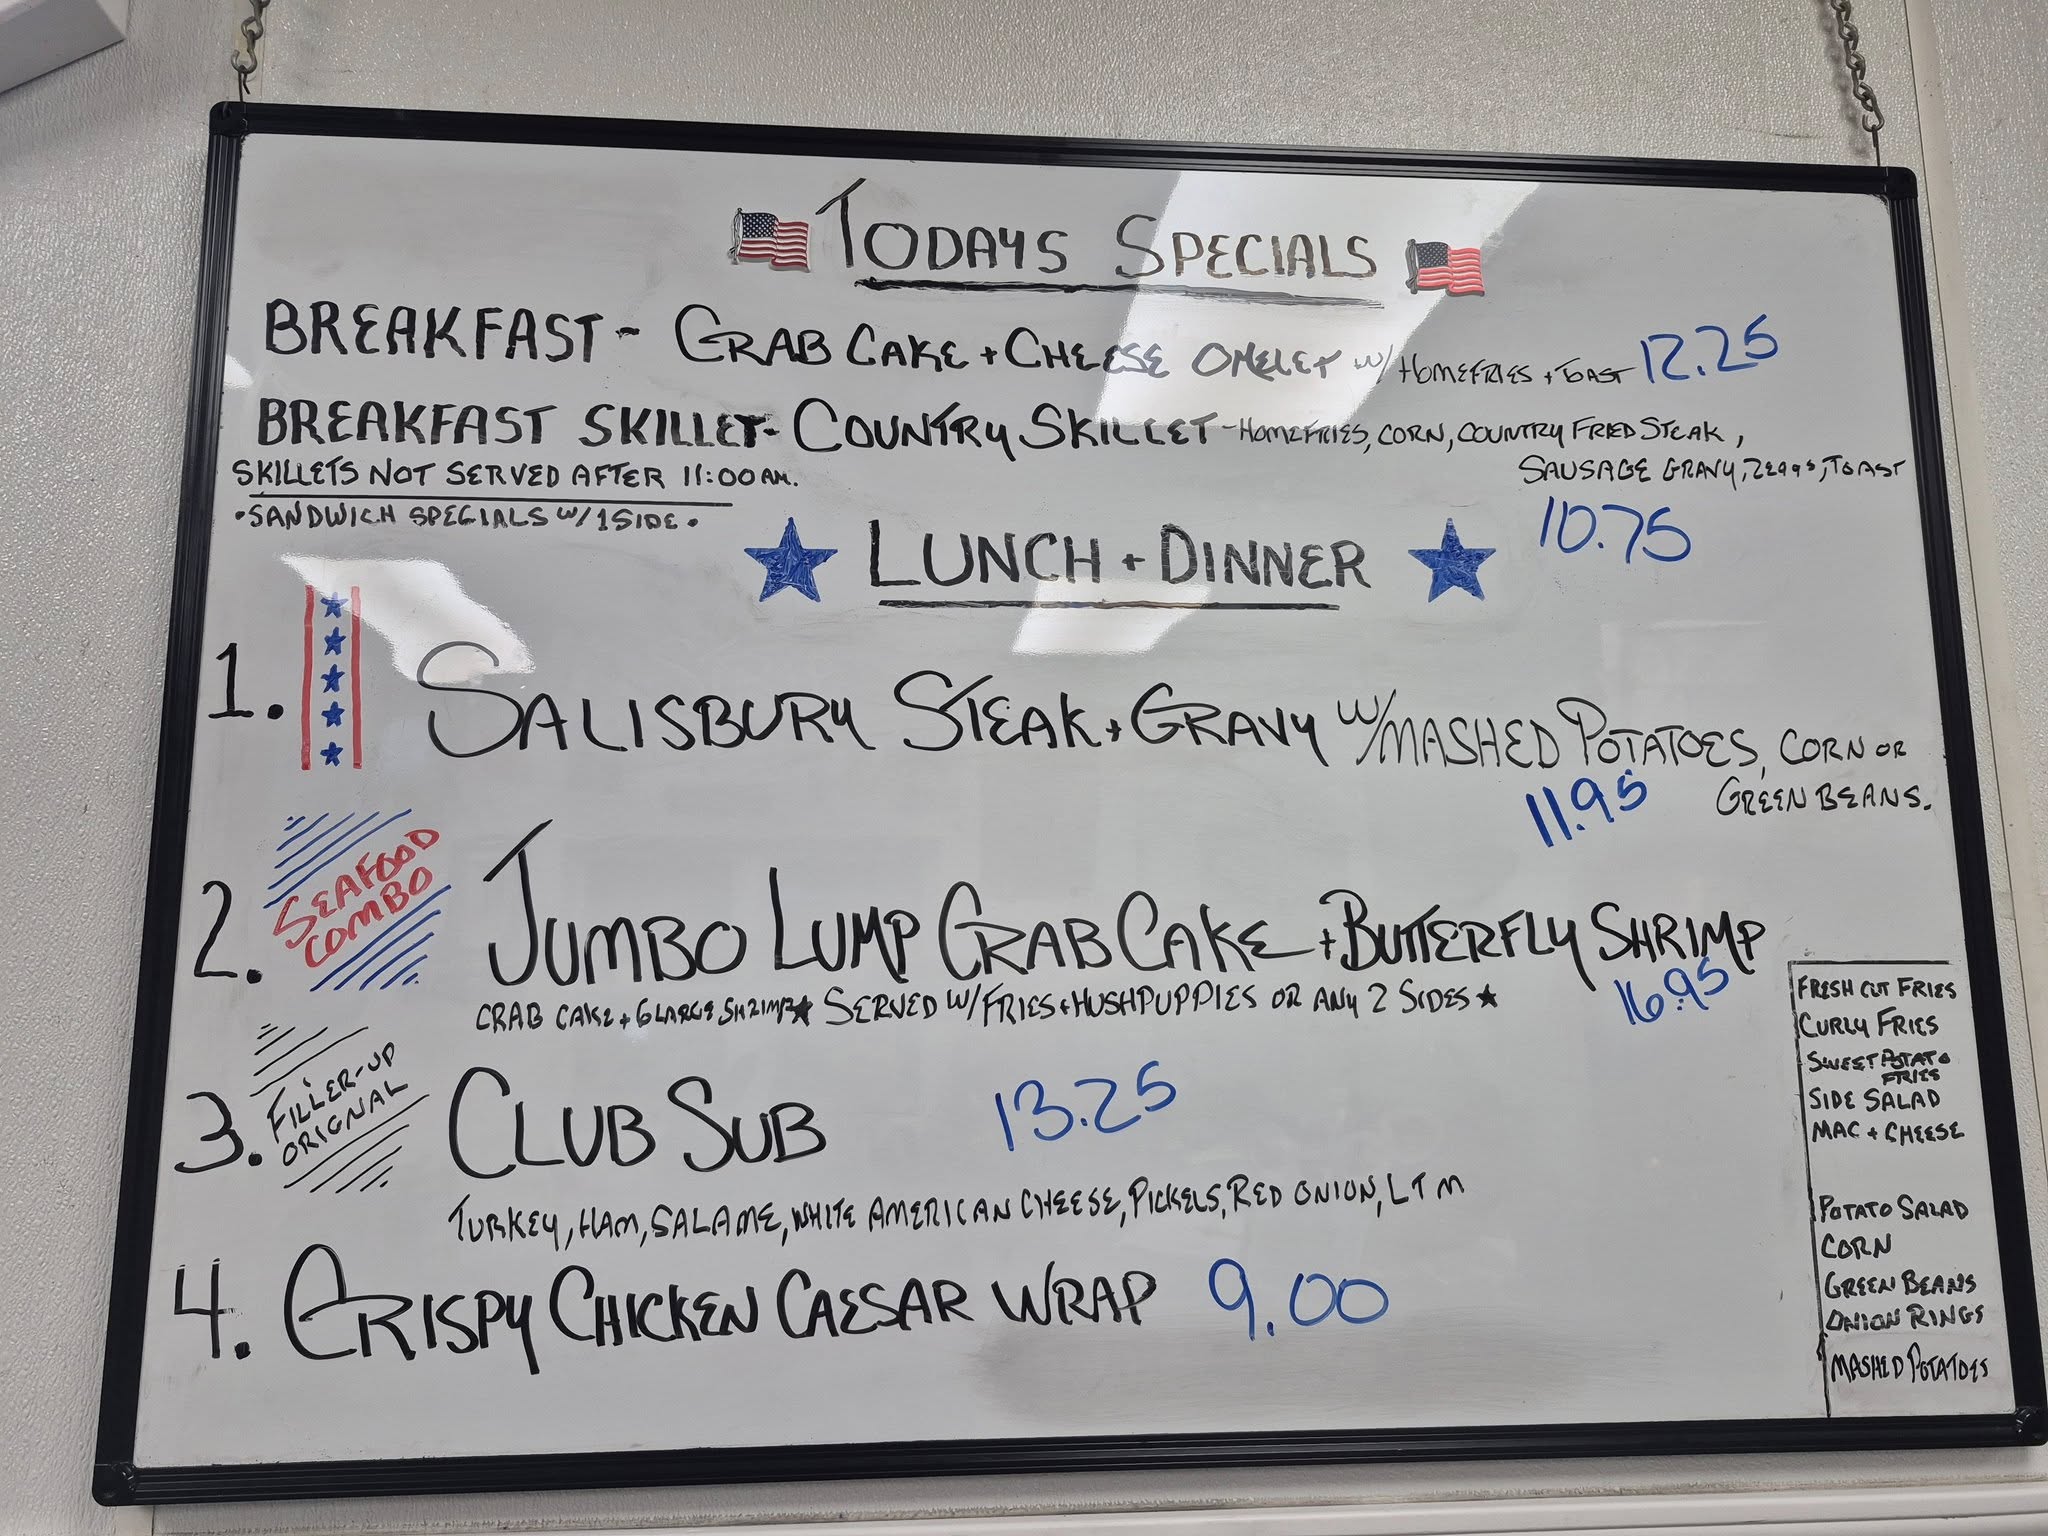 TODAYS SPECIALS
BREAKFAST - CRAB CAKE + CHEESE OMELET W/ HOMEFRIES + TOAST 12.25
BREAKFAST SKILLET - COUNTRY SKILLET - HOMEFRIES, CORN, COUNTRY FRIED STEAK,
SAUSAGE GRAVY, 2 EGGS, TOAST
SKILLETS NOT SERVED AFTER 11:00 AM.
• SANDWICH SPECIALS W/ 1 SIDE •
10.75
LUNCH + DINNER
1. SALISBURY STEAK + GRAVY W/ MASHED POTATOES, CORN OR
GREEN BEANS.
11.95
2. SEAFOOD
COMBO
JUMBO LUMP CRAB CAKE + BUTTERFLY SHRIMP
CRAB CAKE + 6 LARGE SHRIMP ★ SERVED W/ FRIES + HUSHPUPPIES OR ANY 2 SIDES ★
16.95
3. FILLER-UP
ORIGNAL
CLUB SUB 13.25
TURKEY, HAM, SALAME, WHITE AMERICAN CHEESE, PICKELS, RED ONION, L T M
4. CRISPY CHICKEN CAESAR WRAP 9.00
FRESH CUT FRIES
CURLY FRIES
SWEET POTATO
FRIES
SIDE SALAD
MAC + CHEESE
POTATO SALAD
CORN
GREEN BEANS
ONION RINGS
MASHED POTATOES